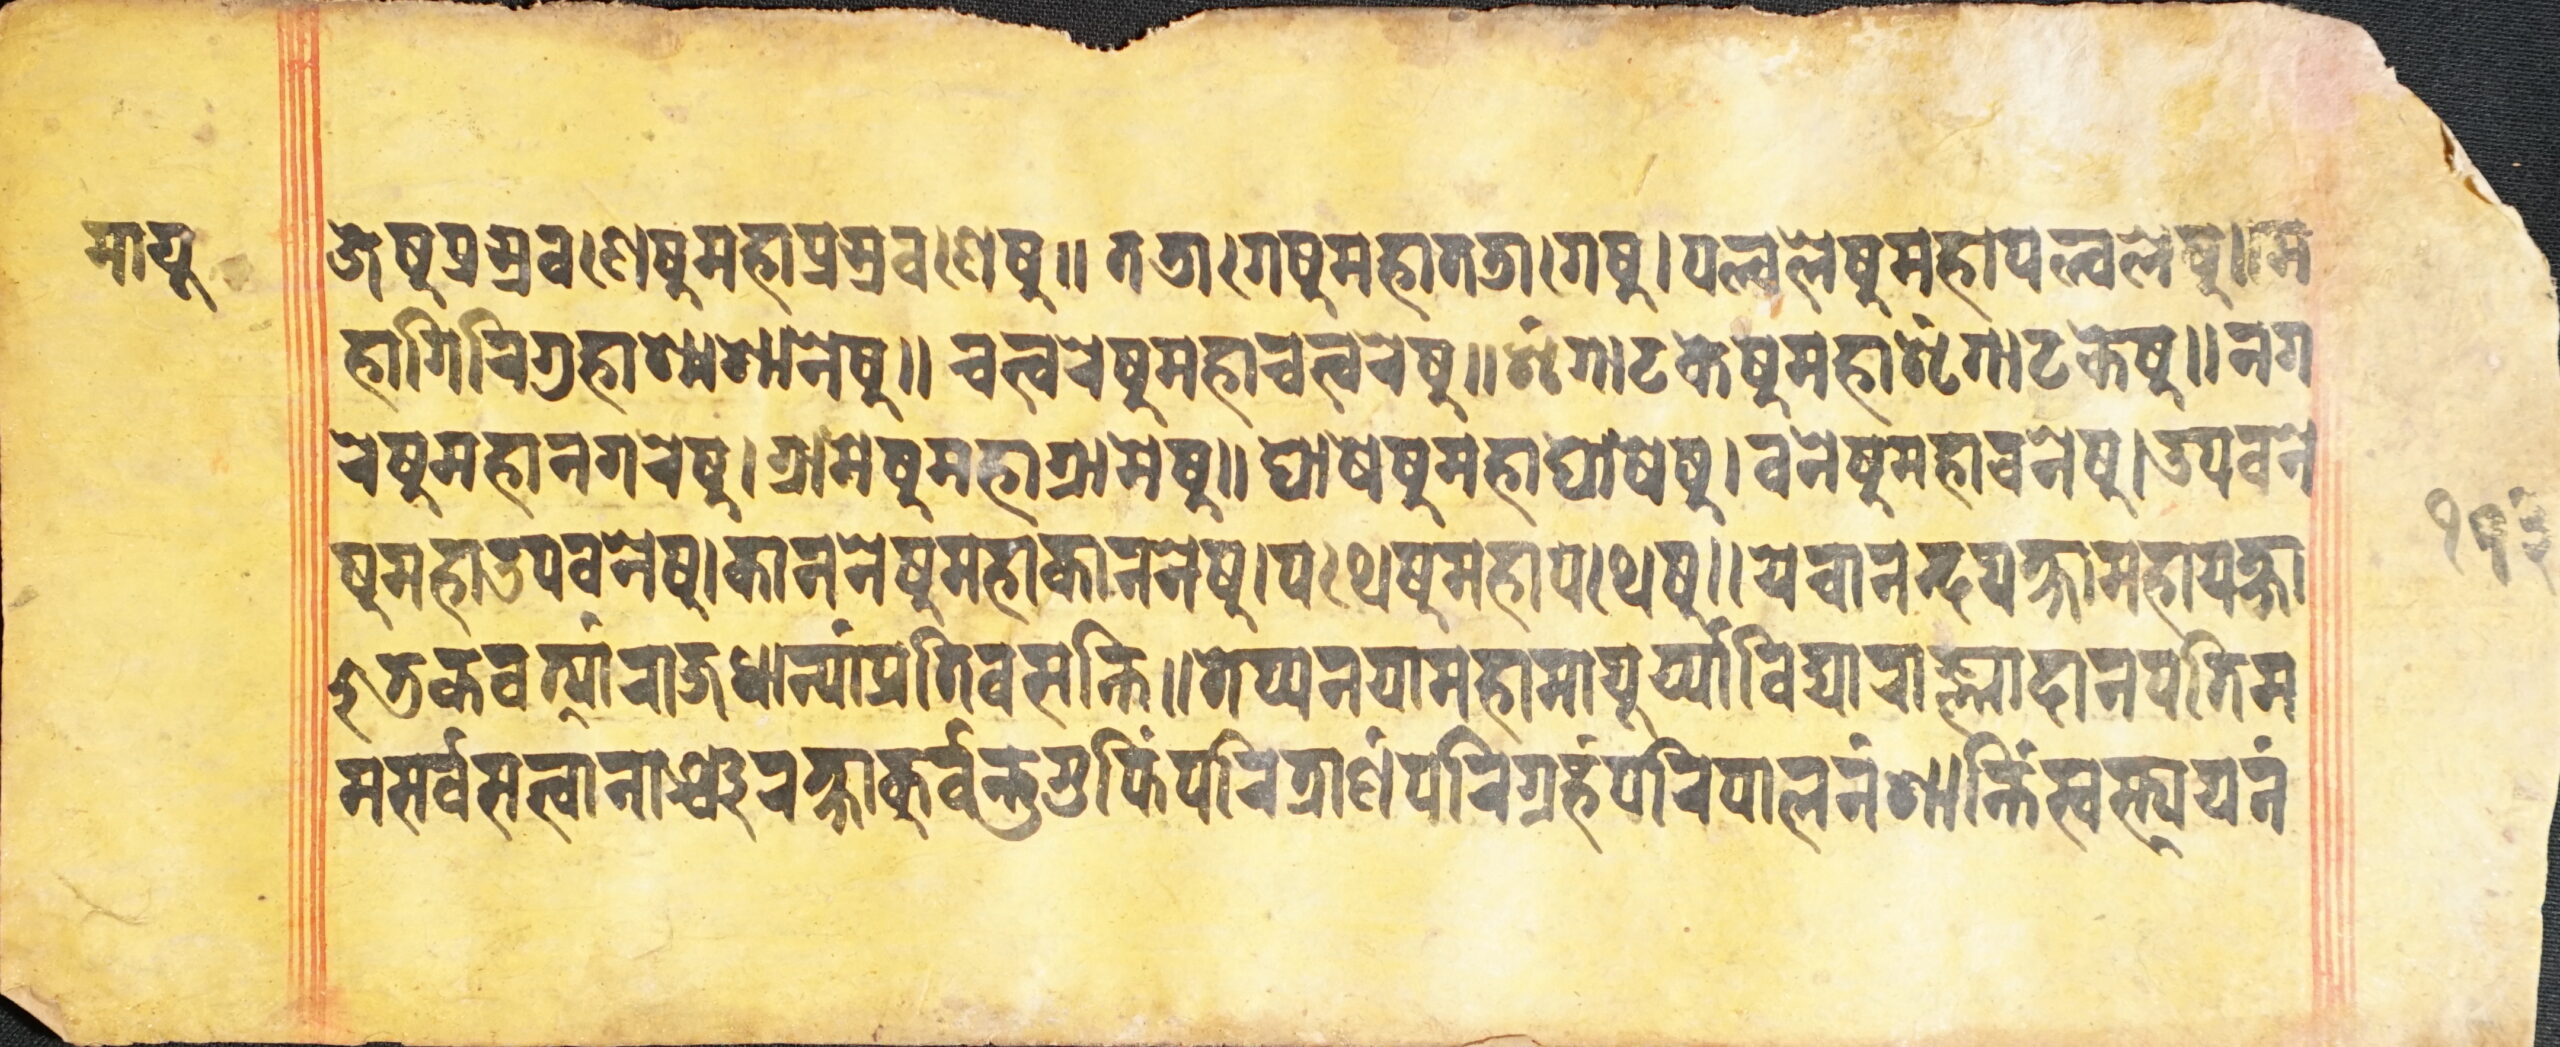 मायू
ञ्जेषुप्रस्रवणेषुमहाप्रस्रवणेषु॥ तडागेषुमहातडागेषु। पल्वलेषुमहापल्वलेषु॥म
हागिरिगुहाश्मशानेषु॥ चत्वरेषुमहाचत्वरेषु॥शृंगाटकेषुमहाशृंगाटकेषु॥नग
रेषुमहानगरेषु। ग्रामेषुमहाग्रामेषु॥ घोषेषुमहाघोषेषु। वनेषुमहावनेषु। उपवने
षुमहाउपवनेषु। काननेषुमहाकाननेषु। पथेषुमहापथेषु॥ येचानन्दयक्षामहायक्षा
अडकवत्यांराजधान्यांप्रतिवसन्ति॥तेप्यनयामहामायूर्य्याविद्याराज्ञादानपतिम
मसर्वसत्वानाञ्चरक्षाकुर्वन्तुगुप्तिंपरित्राणंपरिग्रहंपरिपालनंशान्तिंस्वस्त्ययनं
११३